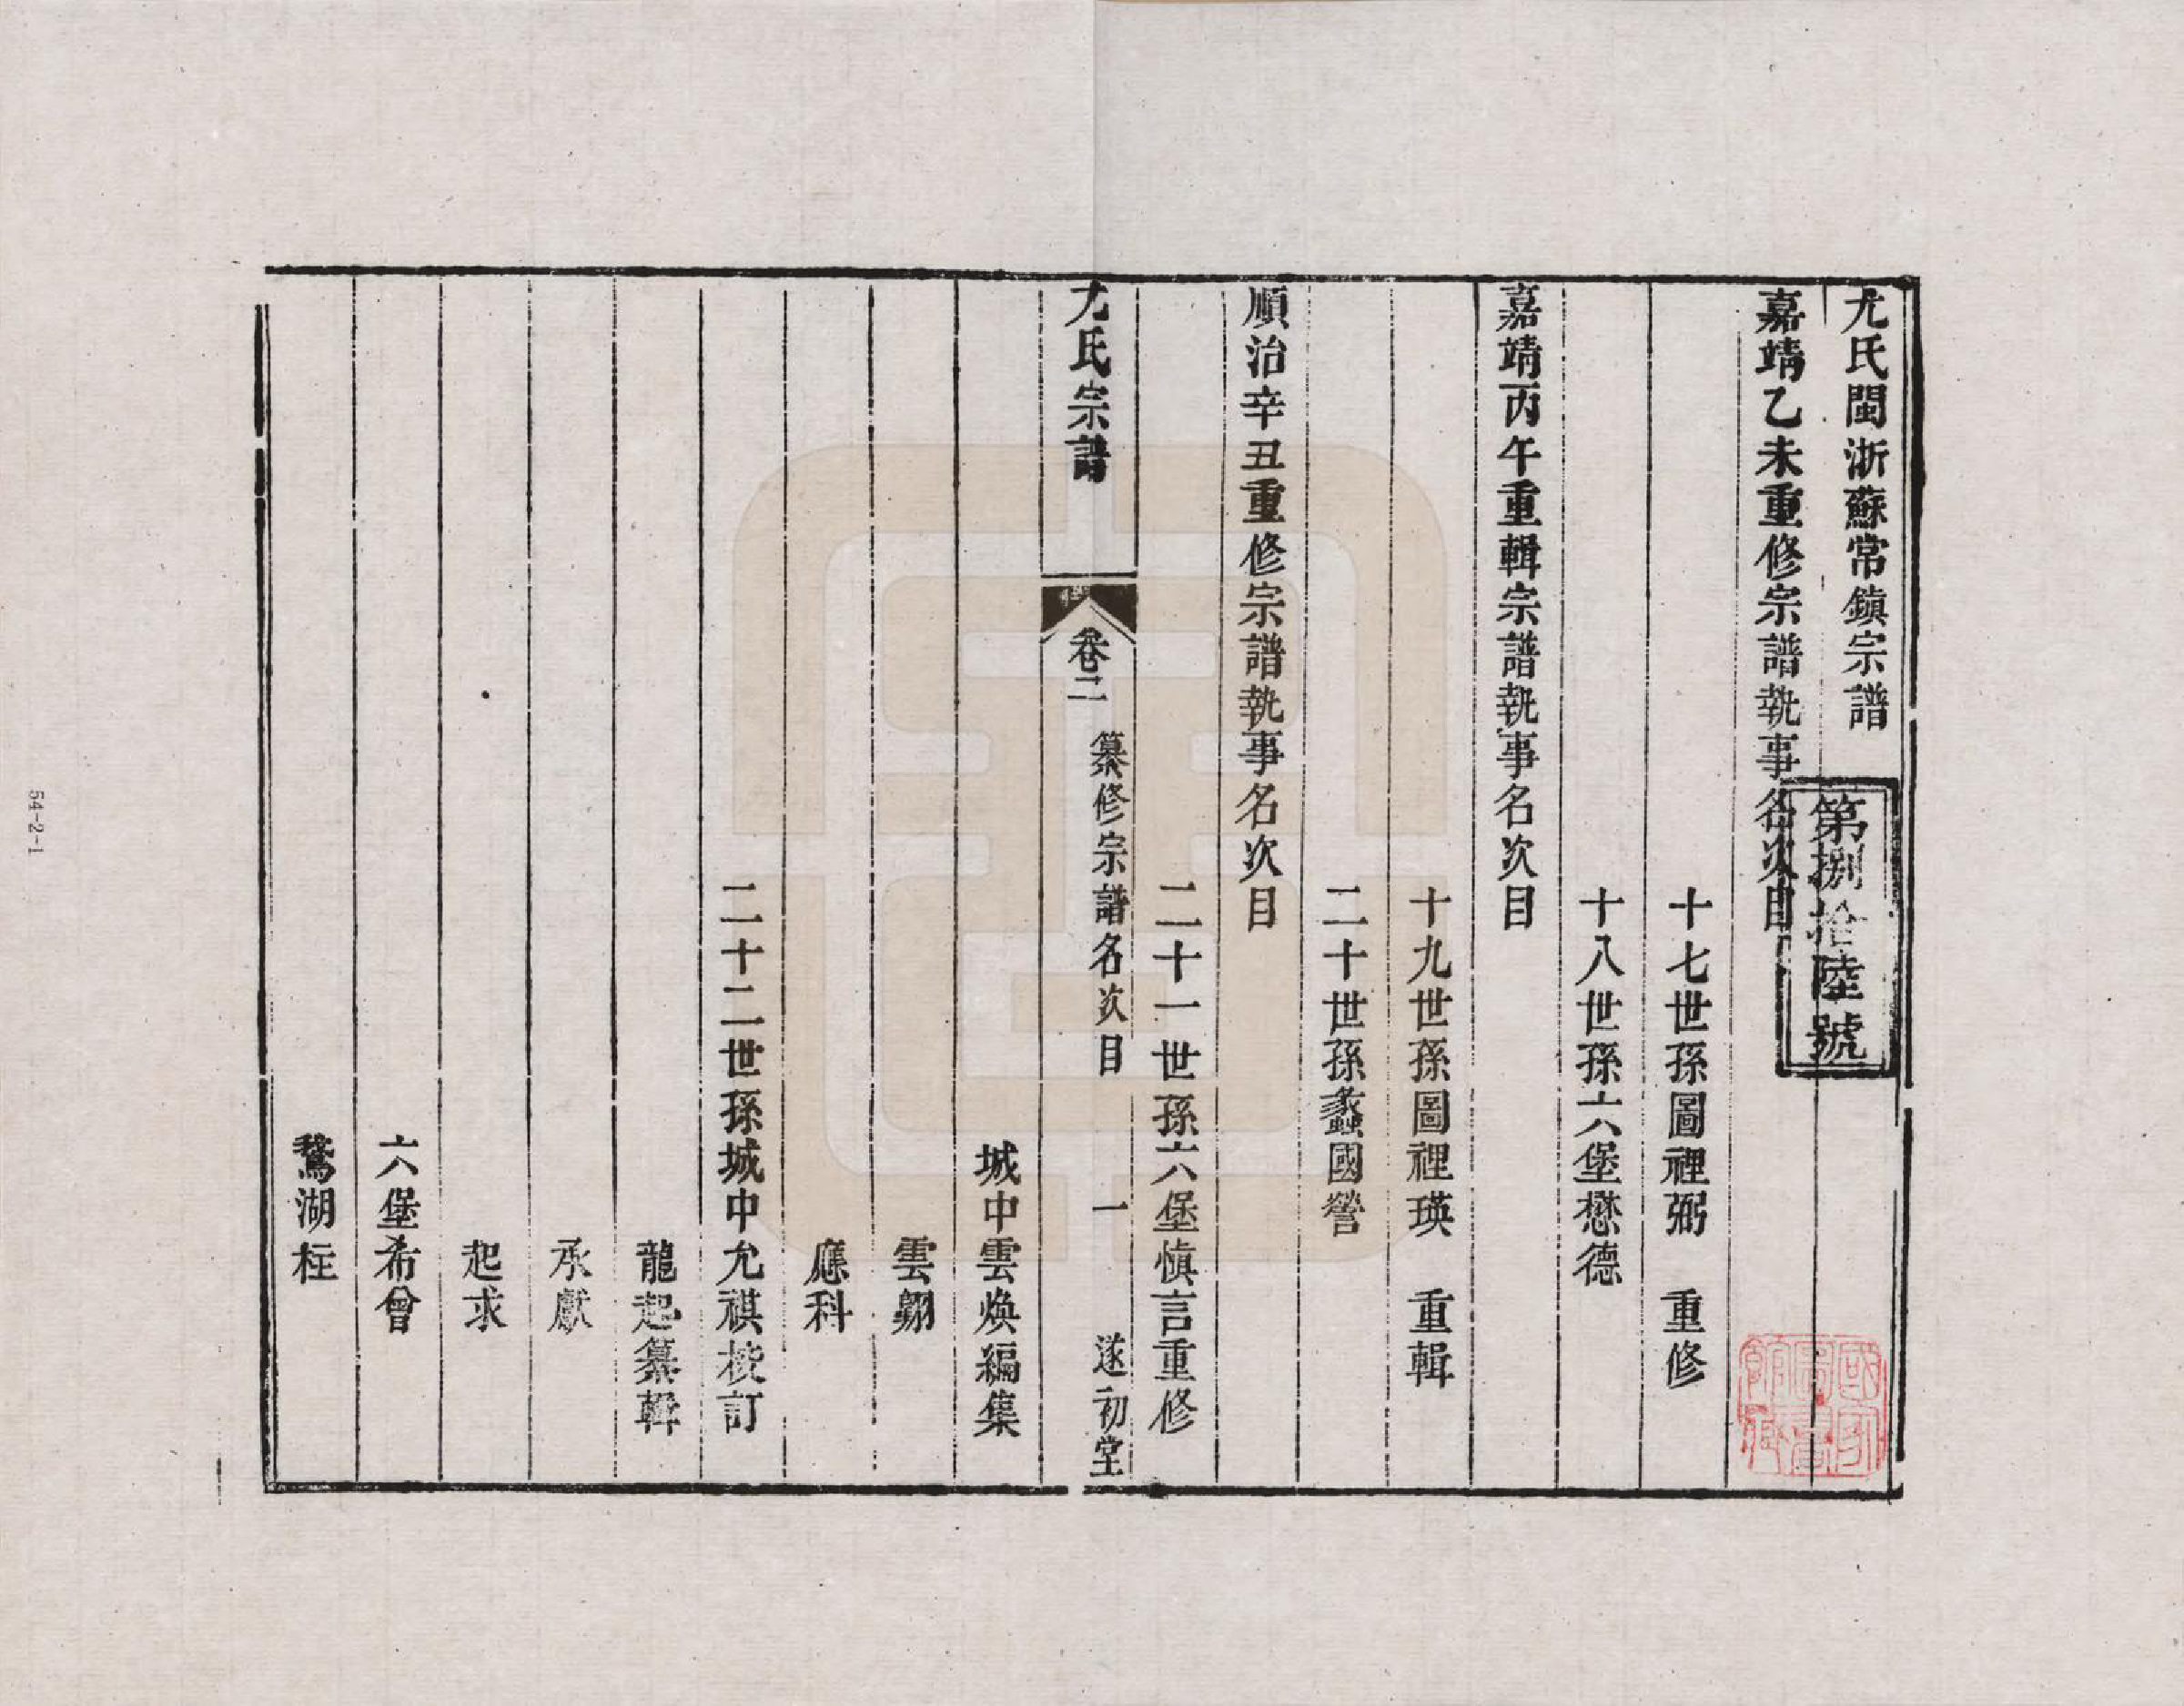 尤氏閩浙蘇常鎮宗譜
第捌拾陸號
嘉靖乙未重修宗譜執事名次目
十七世孫圖裡弼　重修
十八世孫六堡懋德
嘉靖丙午重輯宗譜執事名次目
十九世孫圖裡瑛　重輯
二十世孫蠡國營
順治辛丑重修宗譜執事名次目
二十一世孫六堡慎言重修
尤氏宗譜　卷二　纂修宗譜名次目　一　遂初堂
城中雲煥編集
雲翙
應科
二十二世孫城中允祺校訂
龍起纂輯
承獻
起求
六堡希曾
鵞湖枉
國家圖書館藏
54-2-1